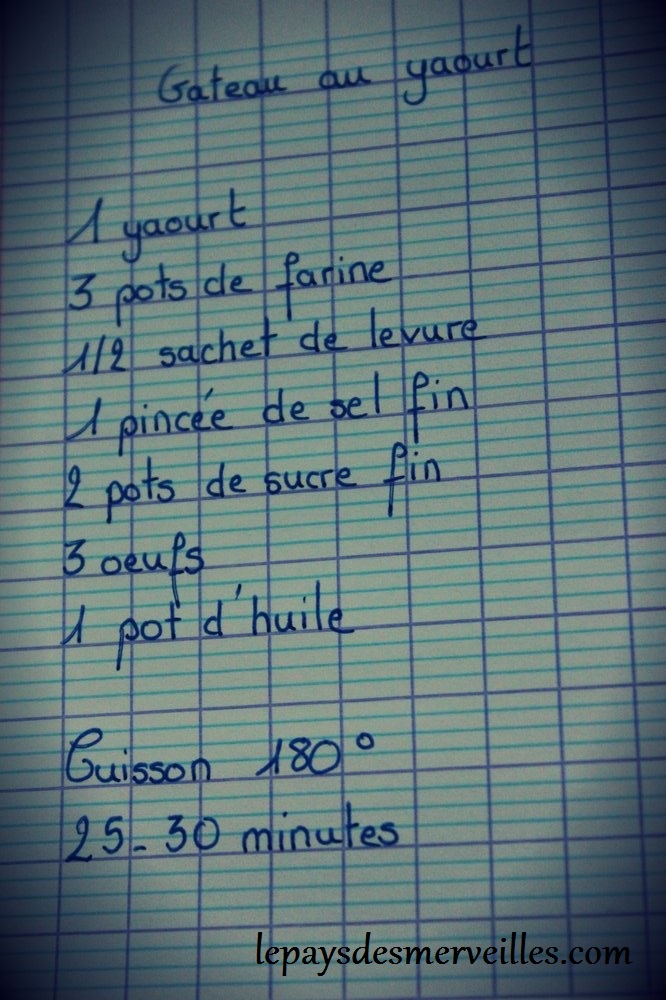 Gateau au yaourt
1 yaourt
3 pots de farine
1/2 sachet de levure
1 pincée de sel fin
2 pots de sucre fin
3 oeufs
1 pot d'huile
Cuisson 180°
25-30 minutes
lepaysdesmerveilles.com